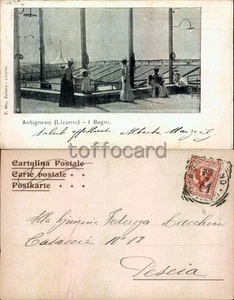 Antignano (Livorno) - I Bagni.
Saluti affettuosi Alberto
toffocard
Cartolina Postale
Carte postale
Postkarte
Alla Signorina Federiga Bacchini
Casaccie N° 12
Pescia